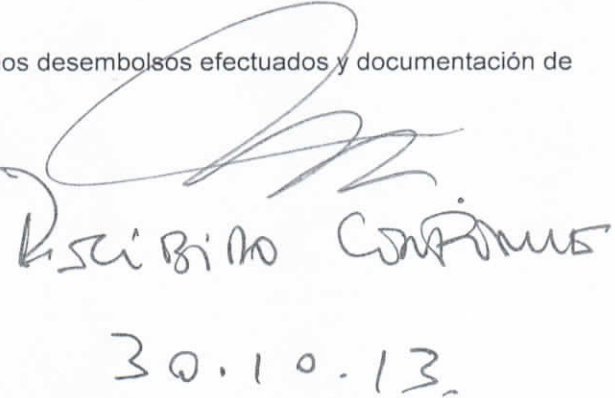 os desembolsos efectuados y documentación de
RECiBiDO CONFORME
30.10.13.